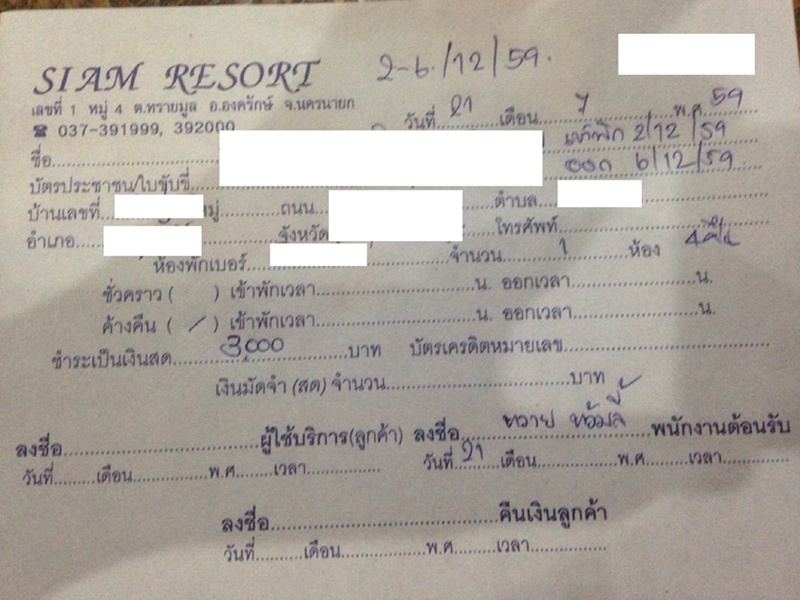 SIAM RESORT
2-6/12/59.
เลขที่ 1 หมู่ 4 ต.ทรายมูล อ.องครักษ์ จ.นครนายก
☎ 037-391999, 392000
วันที่ 21 เดือน 7 พ.ศ 59
ชื่อ
เข้าพัก 2/12/59
ออก 6/12/59
บัตรประชาชน/ใบขับขี่
บ้านเลขที่ หมู่ ถนน ตำบล
อำเภอ จังหวัด โทรศัพท์
ห้องพักเบอร์ จำนวน 1 ห้อง 4 คืน
ชั่วคราว ( ) เข้าพักเวลา น. ออกเวลา น.
ค้างคืน ( / ) เข้าพักเวลา น. ออกเวลา น.
ชำระเป็นเงินสด 3,000 บาท บัตรเครดิตหมายเลข
เงินมัดจำ (สด) จำนวน บาท
ลงชื่อ ผู้ใช้บริการ(ลูกค้า) ลงชื่อ พนักงานต้อนรับ
วันที่ เดือน พ.ศ เวลา วันที่ 21 เดือน พ.ศ เวลา
ลงชื่อ คืนเงินลูกค้า
วันที่ เดือน พ.ศ เวลา